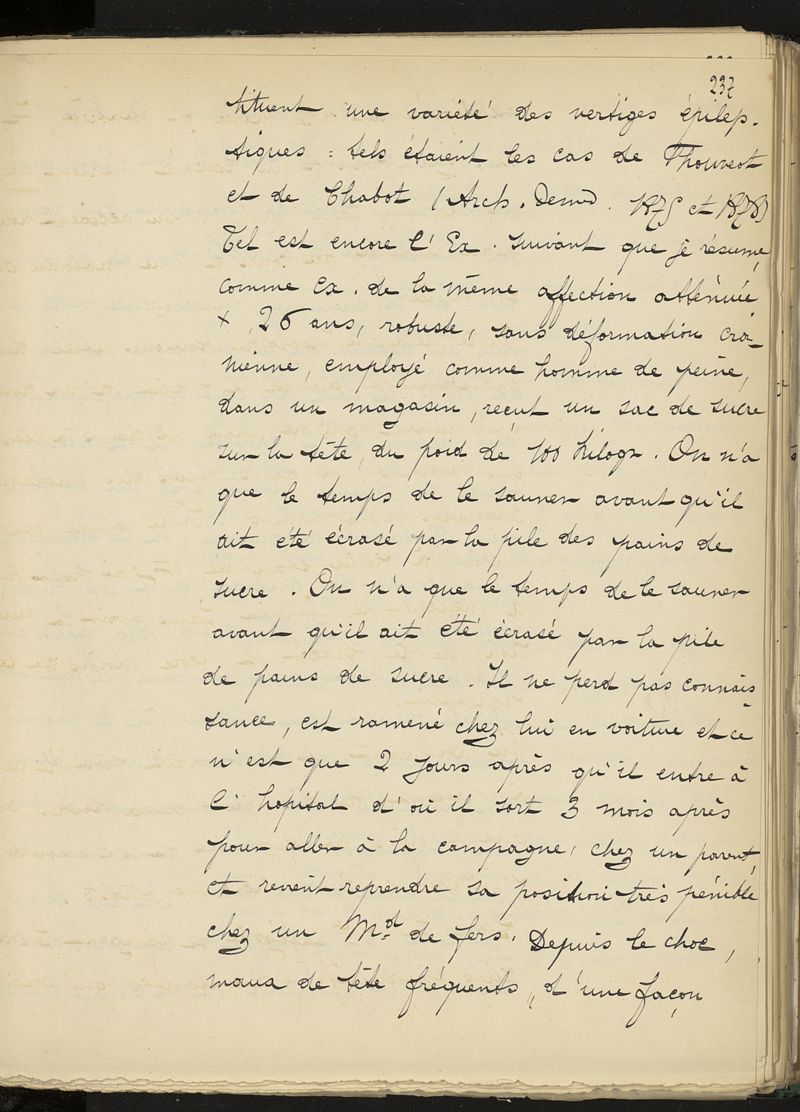 237
tituent une variété des vertiges épilep-
tiques : tels étaient les cas de Thouvest
et de Chabot (Arch. Demed. 1875 et 1878)
Tel est encore l'Ex. suivant que je résume,
comme Ex. de la même affection atténuée
+, 26 ans, robuste, sans déformation crâ-
nienne, employé comme homme de peine,
dans un magasin, reçut un sac de sucre
sur la tête, du poid de 100 kilogr. On n'a
que le temps de le sauver avant qu'il
ait été écrasé par la pile des pains de
sucre. On n'a que le temps de le sauver
avant qu'il ait été écrasé par la pile
de pains de sucre. Il ne perd pas connais-
sance, est ramené chez lui en voiture et ce
n'est que 2 jours après qu'il entre à
l'hopital d'où il sort 3 mois après
pour aller à la campagne, chez un parent,
et revient reprendre sa position très pénible
chez un Md de fers. Depuis le choc,
maux de tête fréquents, d'une façon